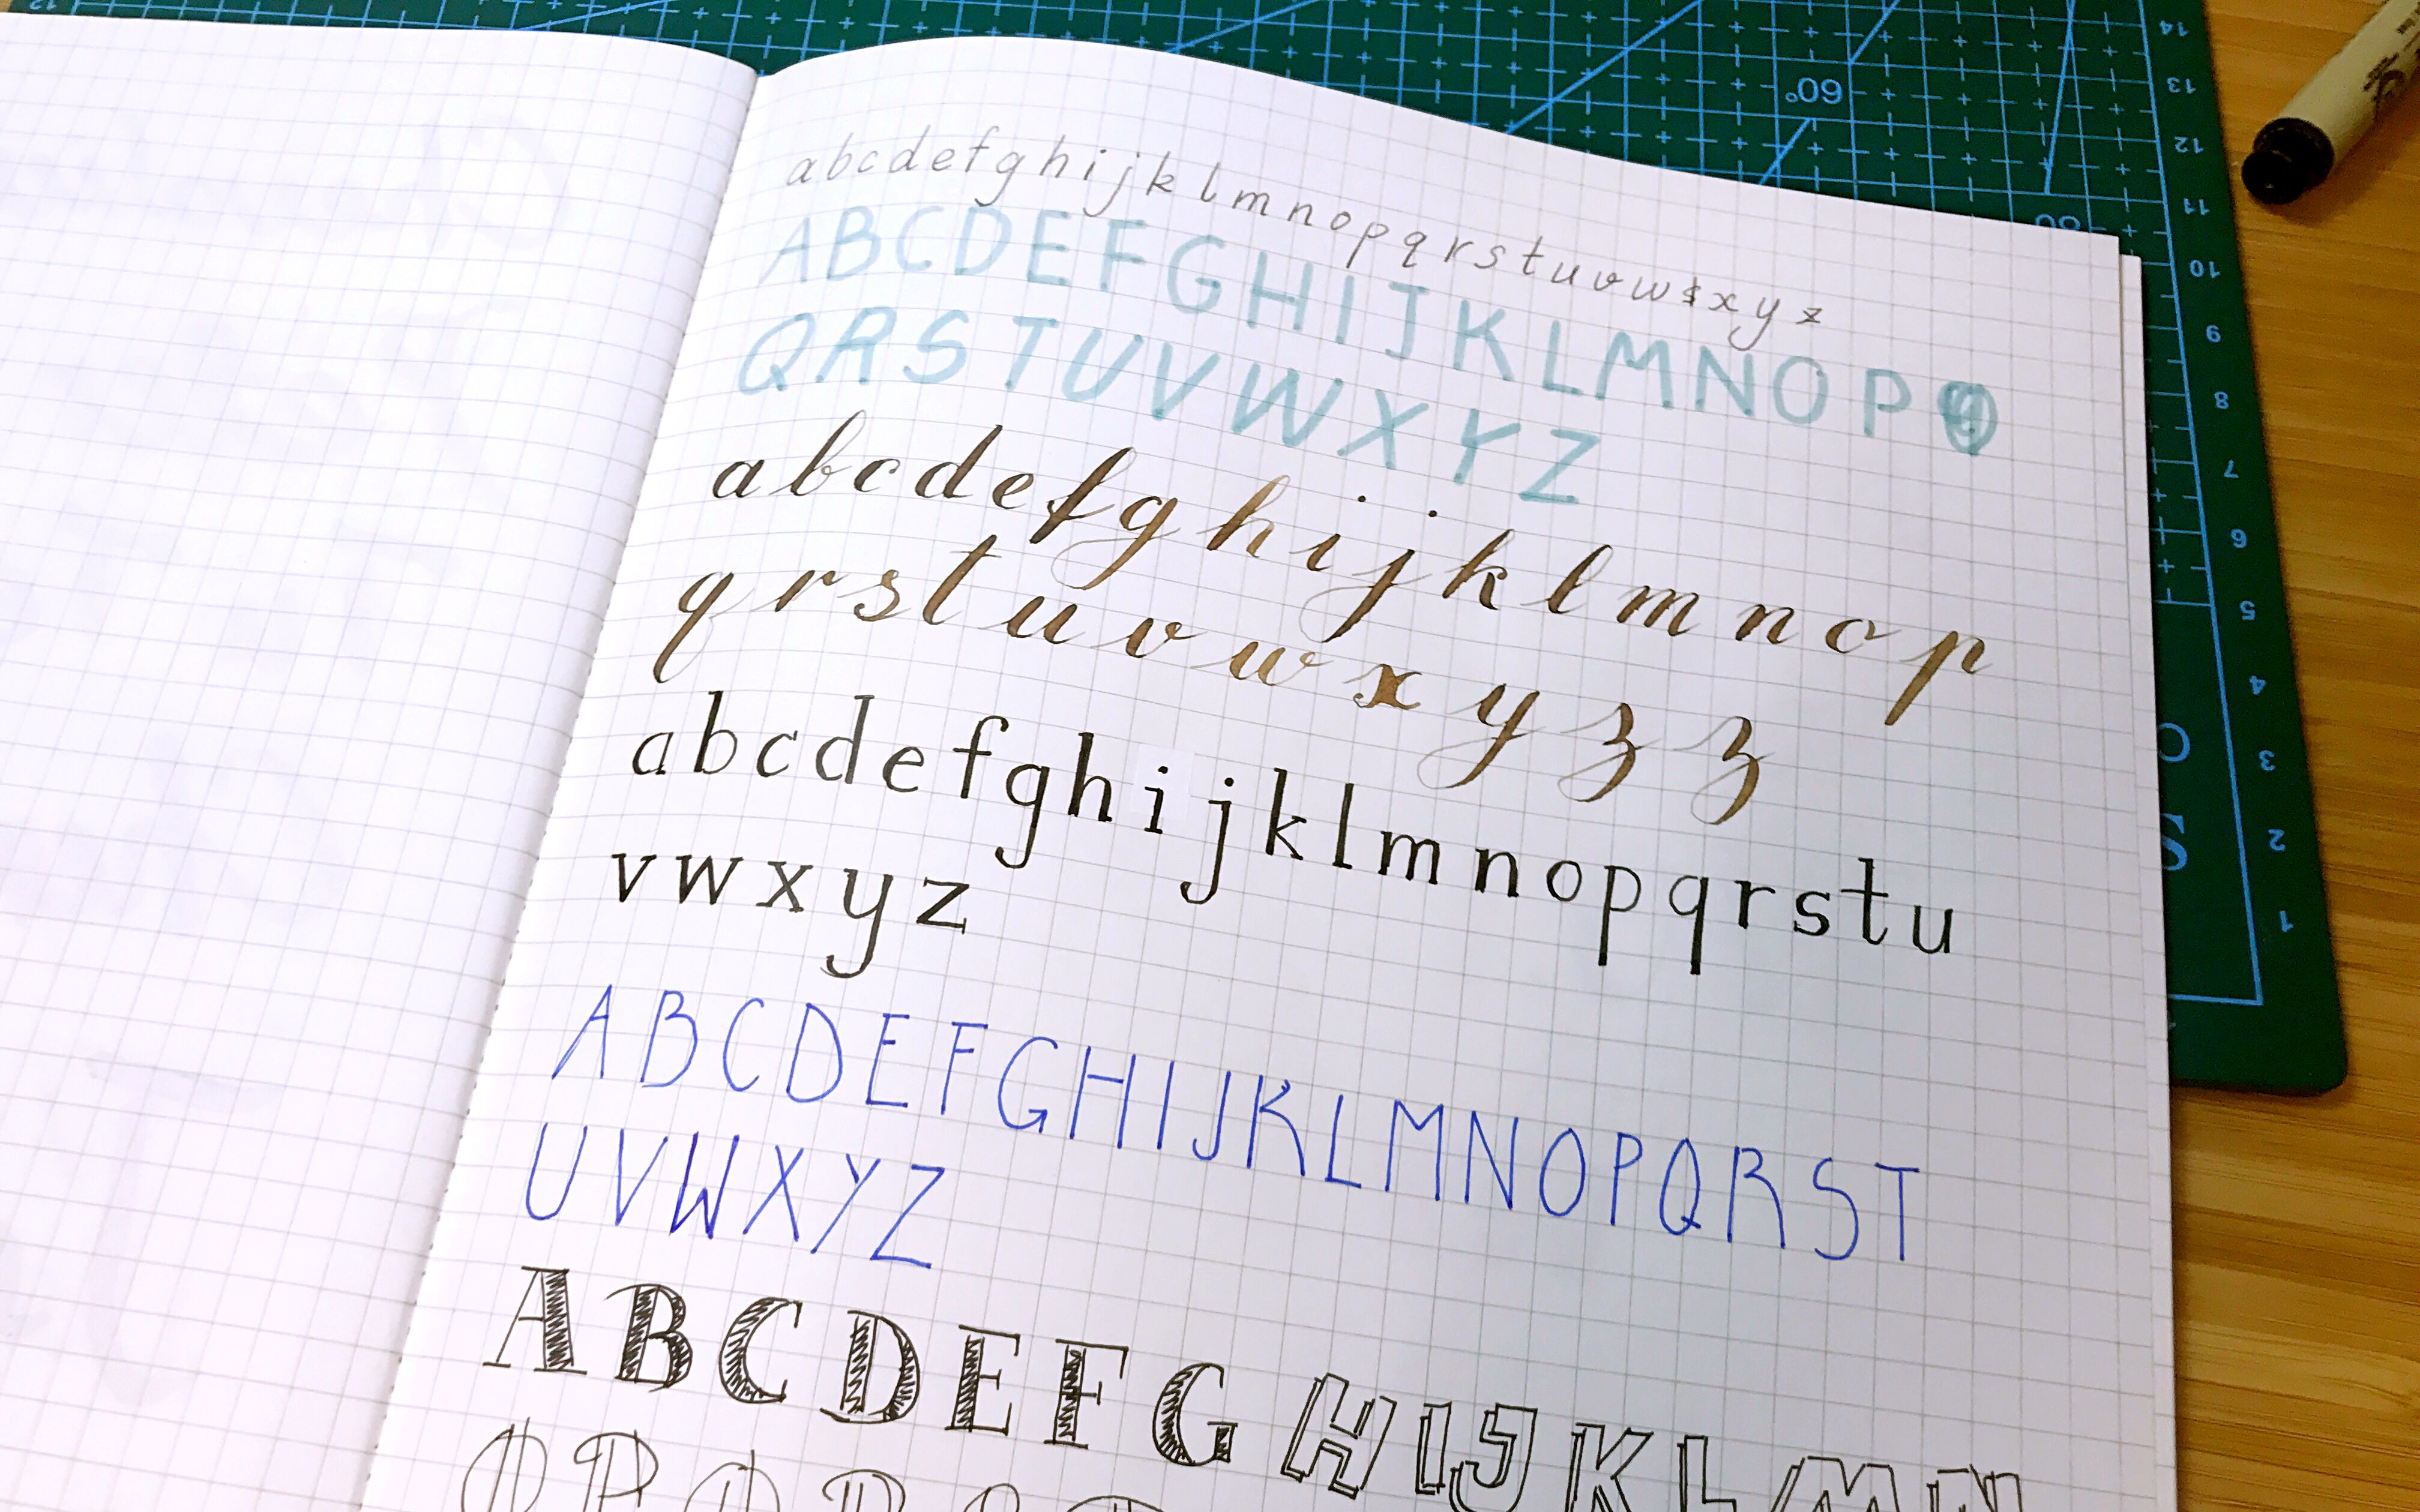 abcdefghijklmnopqrstuvwxyz
ABCDEFGHIJKLMNOP
QRSTUVWXYZ
abcdefghijklmnop
qrstuvwxyzz
abcdefghijklmnopqrstu
vwxyz
ABCDEFGHIJKLMNOPQRST
UVWXYZ
ABCDEFGHIJKLMN
OPQRS
60°
14
13
12
11
10
9
8
7
6
5
4
3
2
1